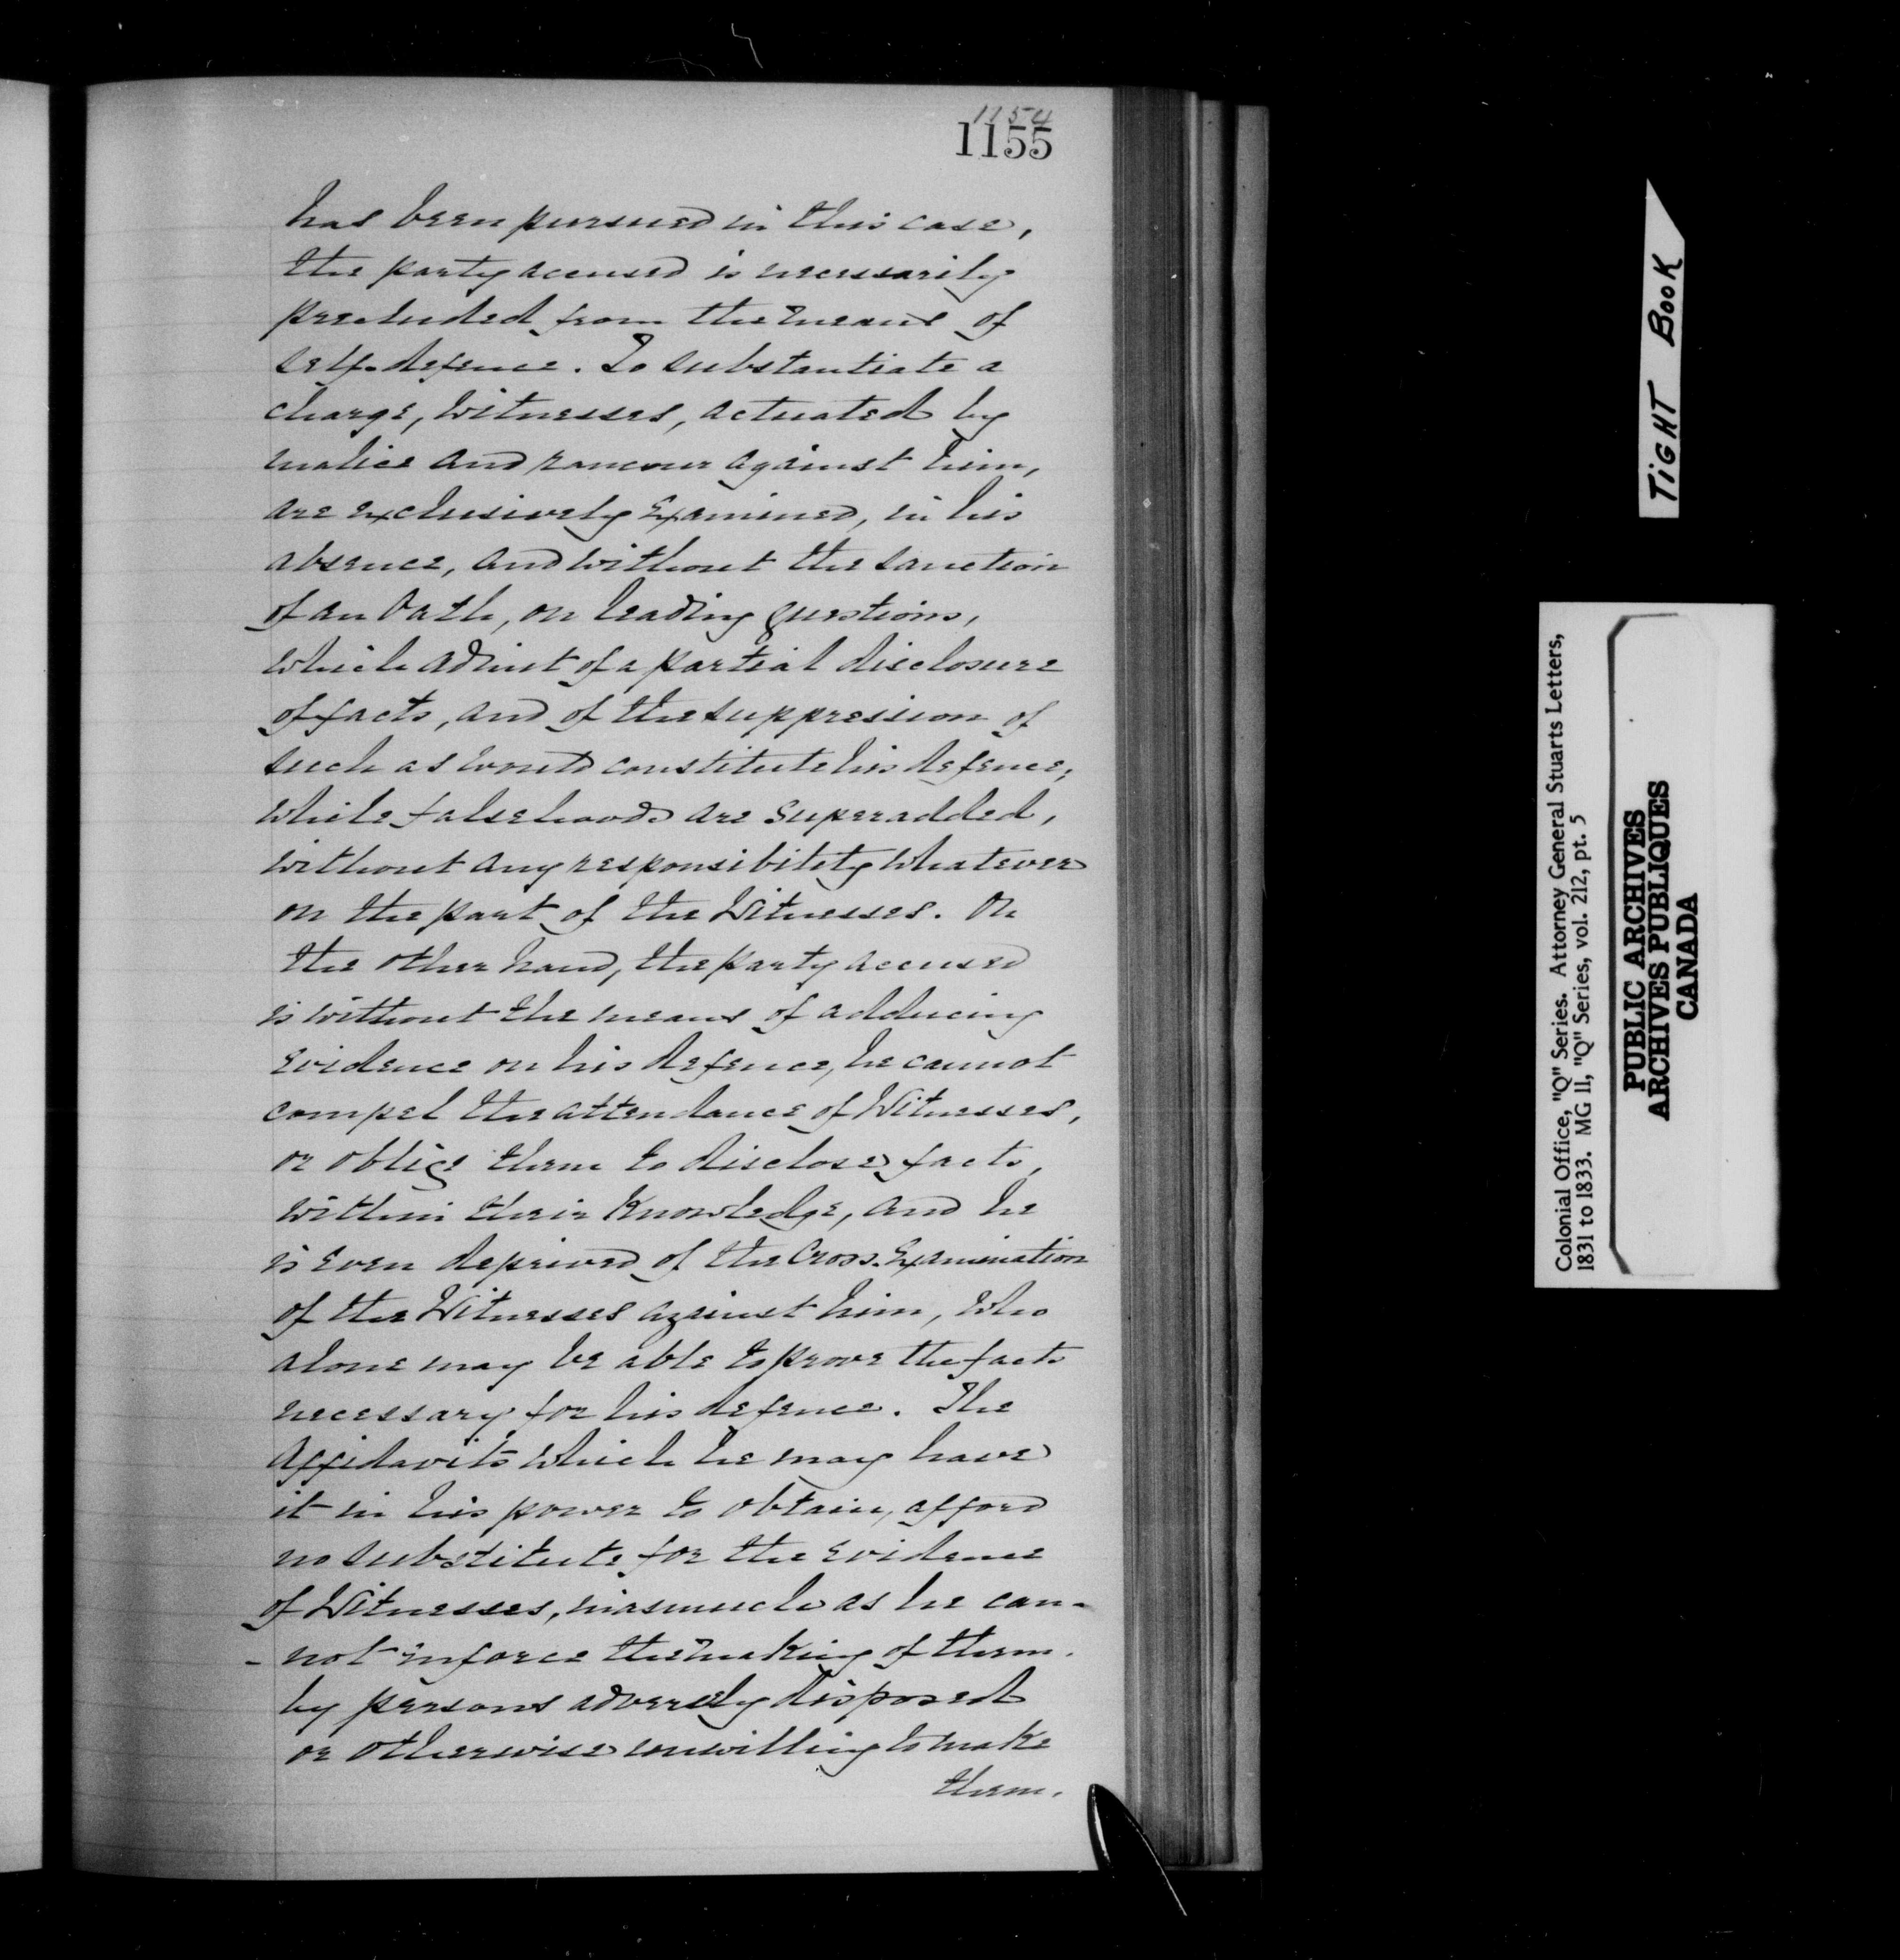 1154
1155
has been pursued in this case,
the party accused is necessarily
precluded from the means of
self-defence. To substantiate a
charge, Witnesses, actuated by
malice and rancour against him,
are exclusively Examined, in his
absence, and without the sanction
of an Oath, on leading questions,
which admit of a partial disclosure
of facts, and of the suppression of
such as would constitute his defence;
while falsehoods are superadded,
without any responsibility whatever
on the part of the Witnesses. On
the other hand, the party accused
is without the means of adducing
Evidence on his defence, he cannot
compel the attendance of Witnesses,
or oblige them to disclose facts,
within their Knowledge, and he
is Even deprived of the Cross-Examination
of the Witnesses against him, who
alone may be able to prove the facts
necessary for his defence. The
Affidavits which he may have
it in his power to obtain, afford
no substitute for the Evidence
of Witnesses, inasmuch as he can-
- not inforce the making of them.
by persons adversely disposed
or otherwise unwilling to make
them.
TIGHT BOOK
Colonial Office, "Q" Series. Attorney General Stuarts Letters,
1831 to 1833. MG 11, "Q" Series, vol. 212, pt. 5
PUBLIC ARCHIVES
ARCHIVES PUBLIQUES
CANADA